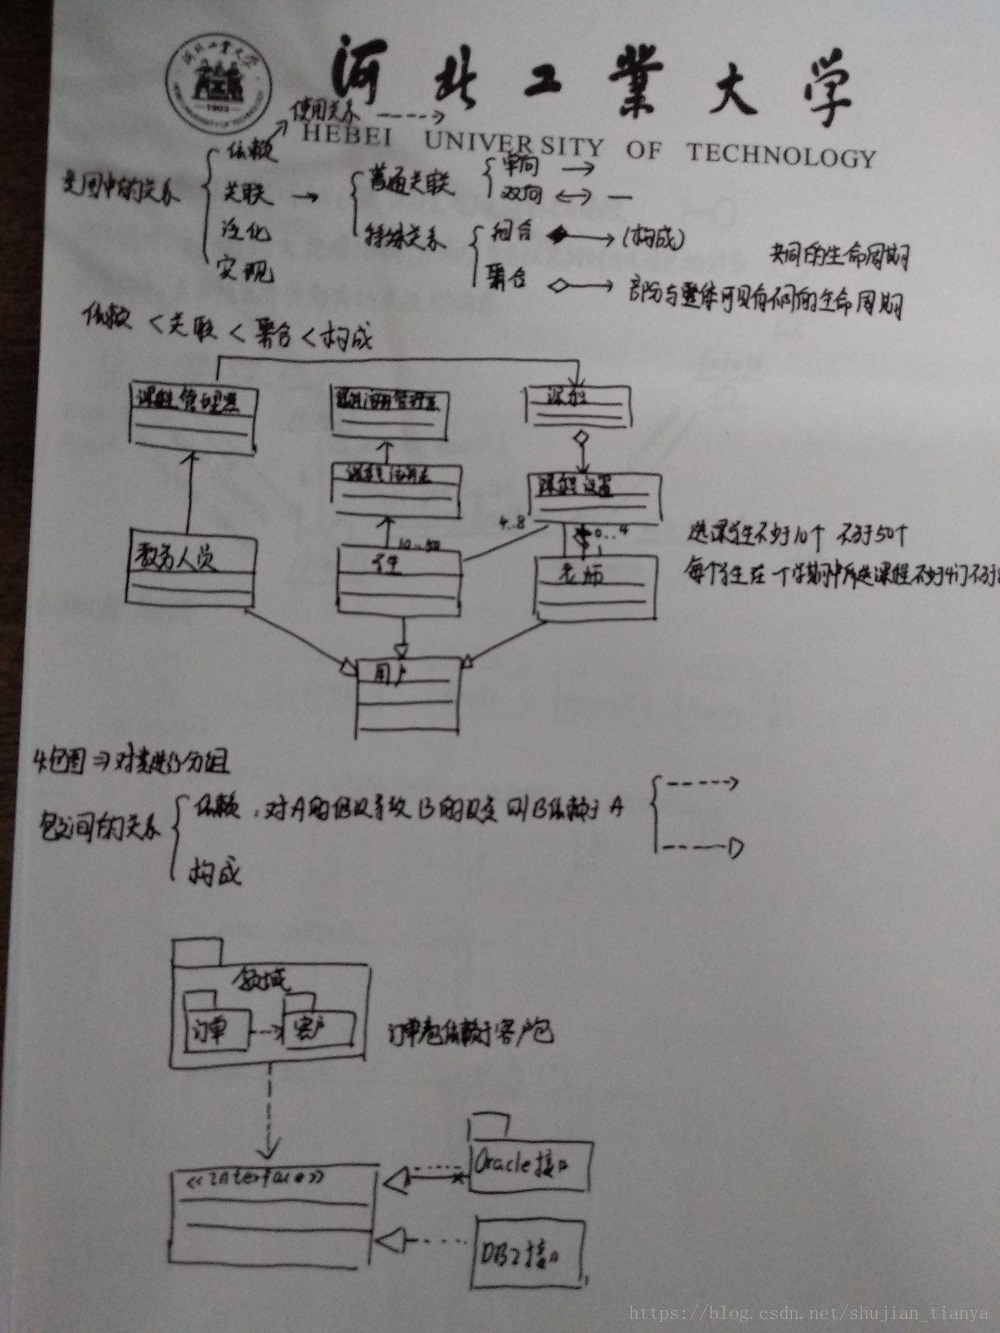 河北工業大学
1903
HEBEI UNIVERSITY OF TECHNOLOGY
使用关系
类图中的关系
依赖
关联
泛化
实现
普通关联
单向
双向
特殊关系
组合 (构成)
共同的生命周期
聚合
部份与整体可具有不同的生命周期
依赖 < 关联 < 聚合 < 构成
课程管理器
课程
课程设置
4..8
0..4
1
10..50
教务人员
学生
老师
用户
选课学生不少于10个 不多于50个
每个学生在一个学期中所选课程不少于4门不多于
4.包图 ⇒ 对类进行分组
包之间的关系
依赖. 对A的修改导致B的改变 则B依赖于A
构成
领域
订单
客户
订单包依赖于客户包
<<interface>>
Oracle接口
DB2接口
https://blog.csdn.net/shujian_tianya